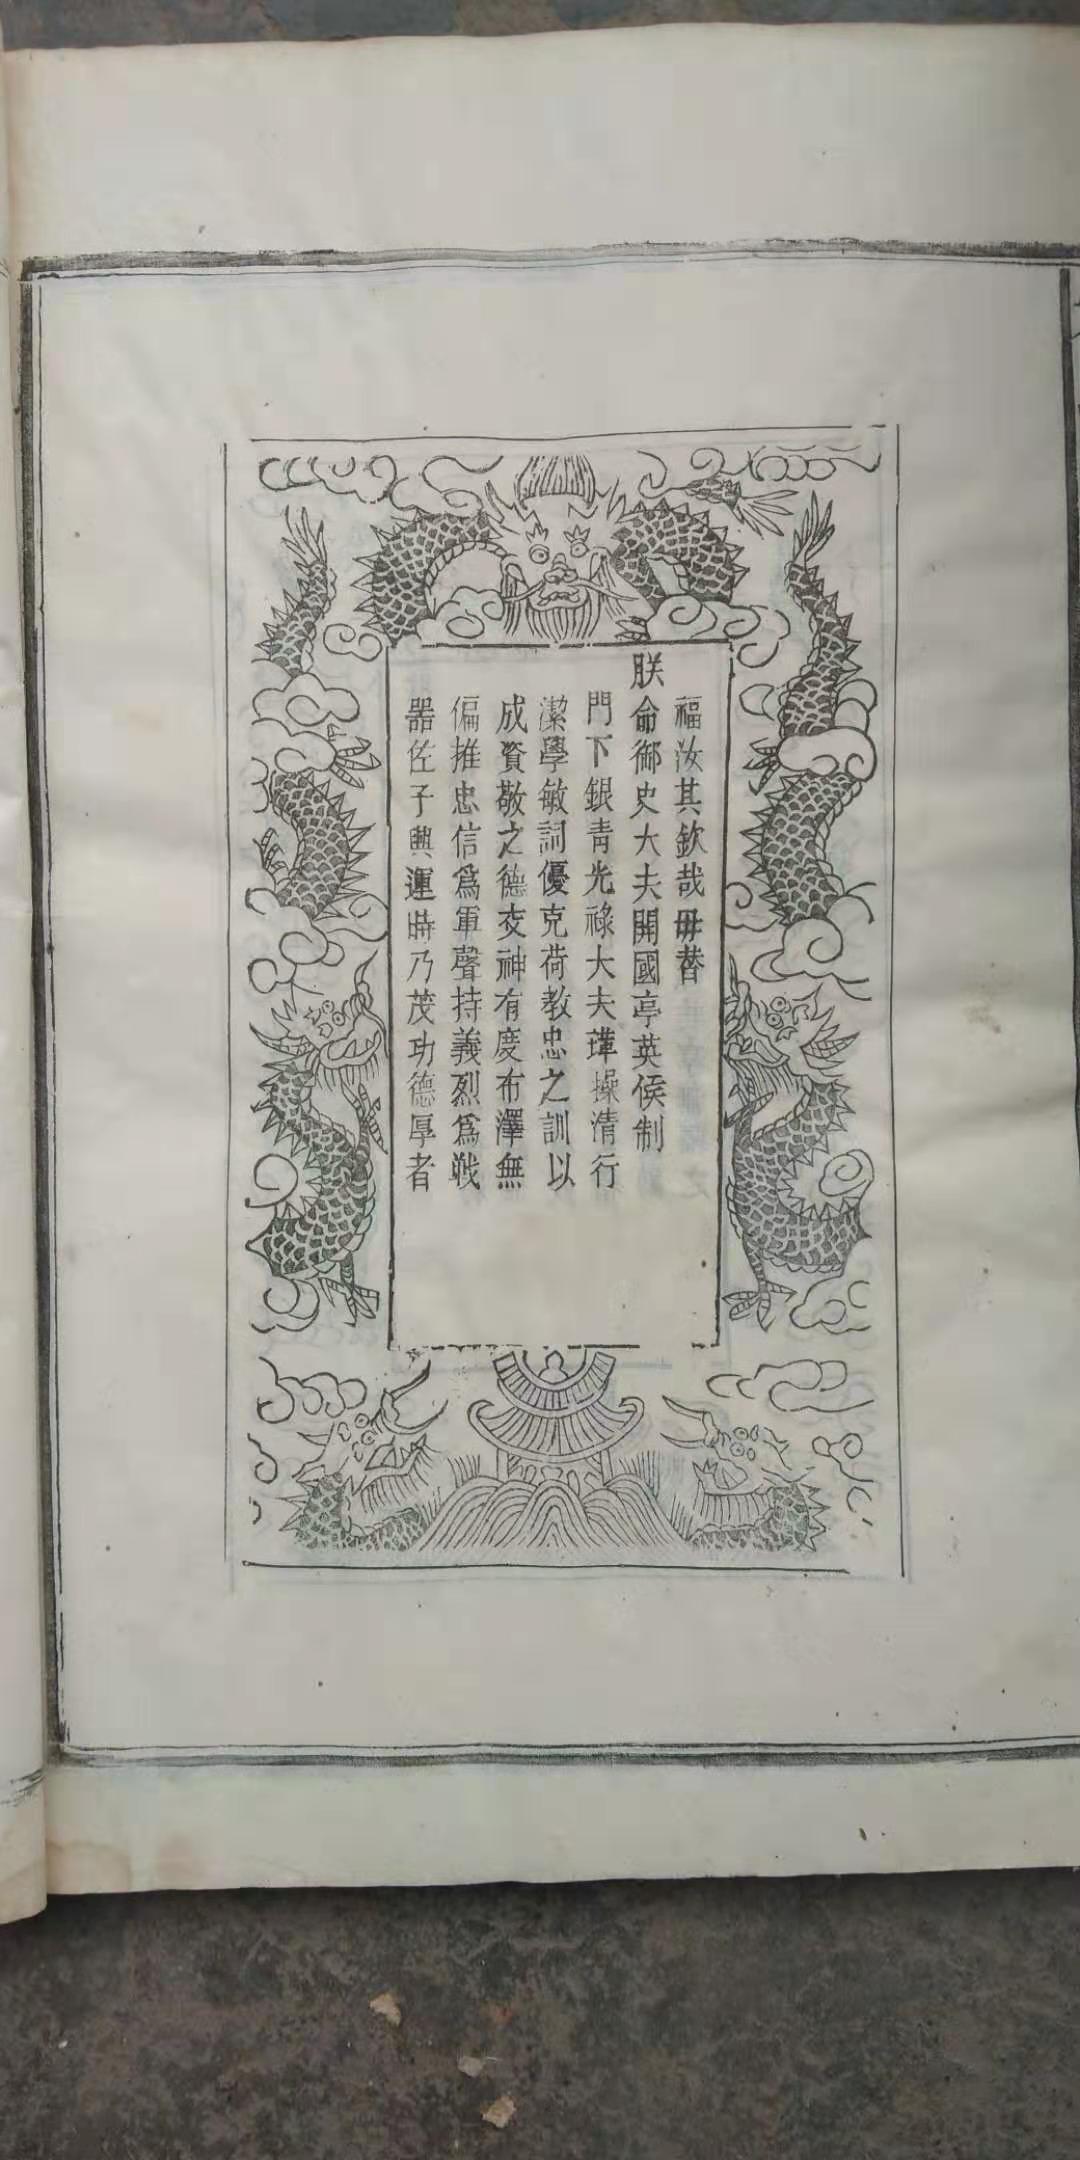 福汝其欽哉毋替
朕命御史大夫開國亭英侯制
門下銀青光祿大夫瑋操清行
潔學敏詞優克荷教忠之訓以
成資敬之德交神有度布澤無
偏推忠信為軍聲持義烈爲戦
器佐予興運時乃茂功德厚者